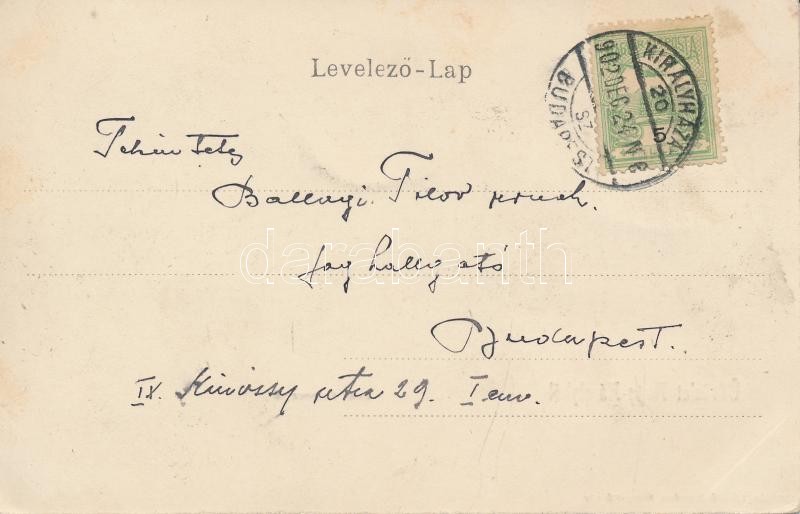 Levelező-Lap
KIRÁLYHÁZA
BUDAPEST
902 DEC. 24 N 6
20 5
SZ
Tekintetes
Ballagi Tibor urnak.
joghallgató
Budapest.
IX. Kinizsy utca 29. I em.
darabanth